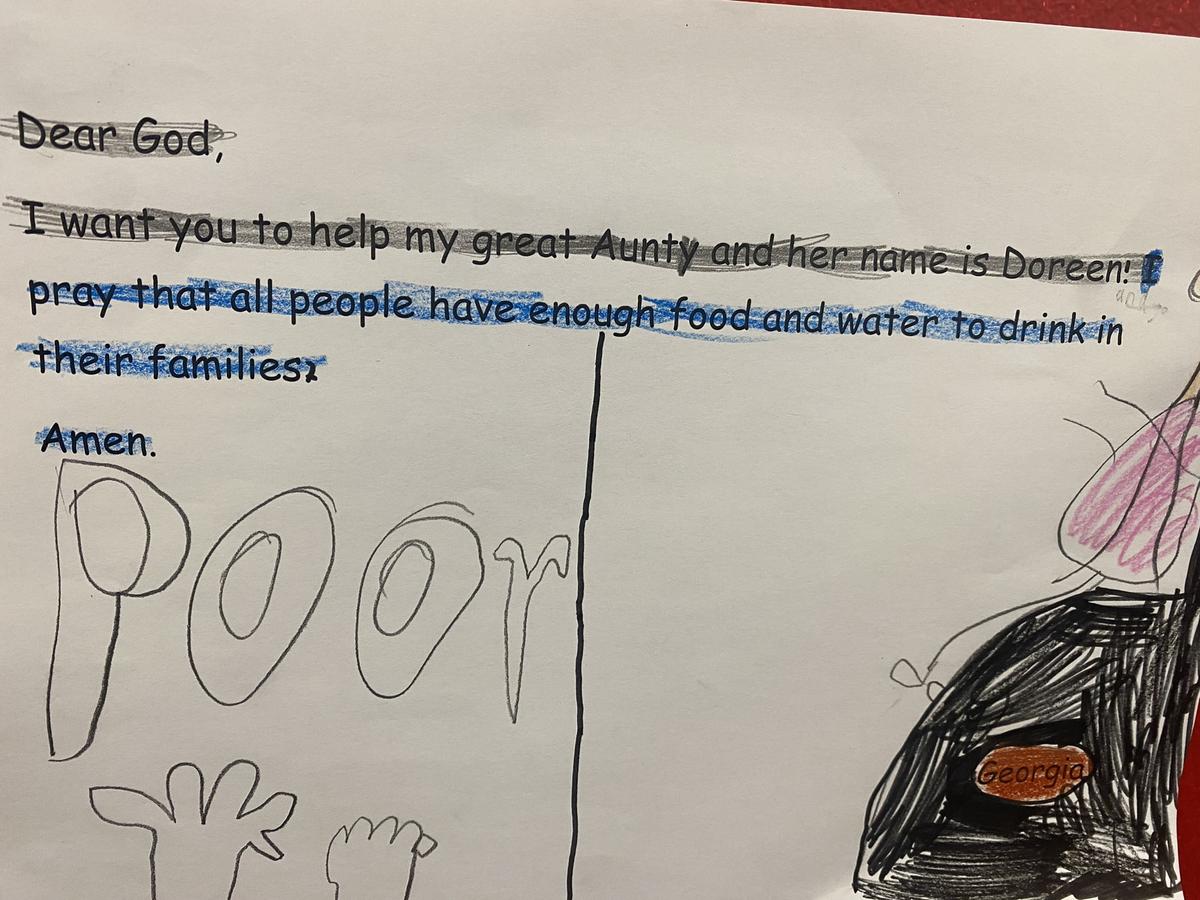 Dear God,
I want you to help my great Aunty and her name is Doreen! I
and
pray that all people have enough food and water to drink in
their families.
Amen.
Poor
Georgia